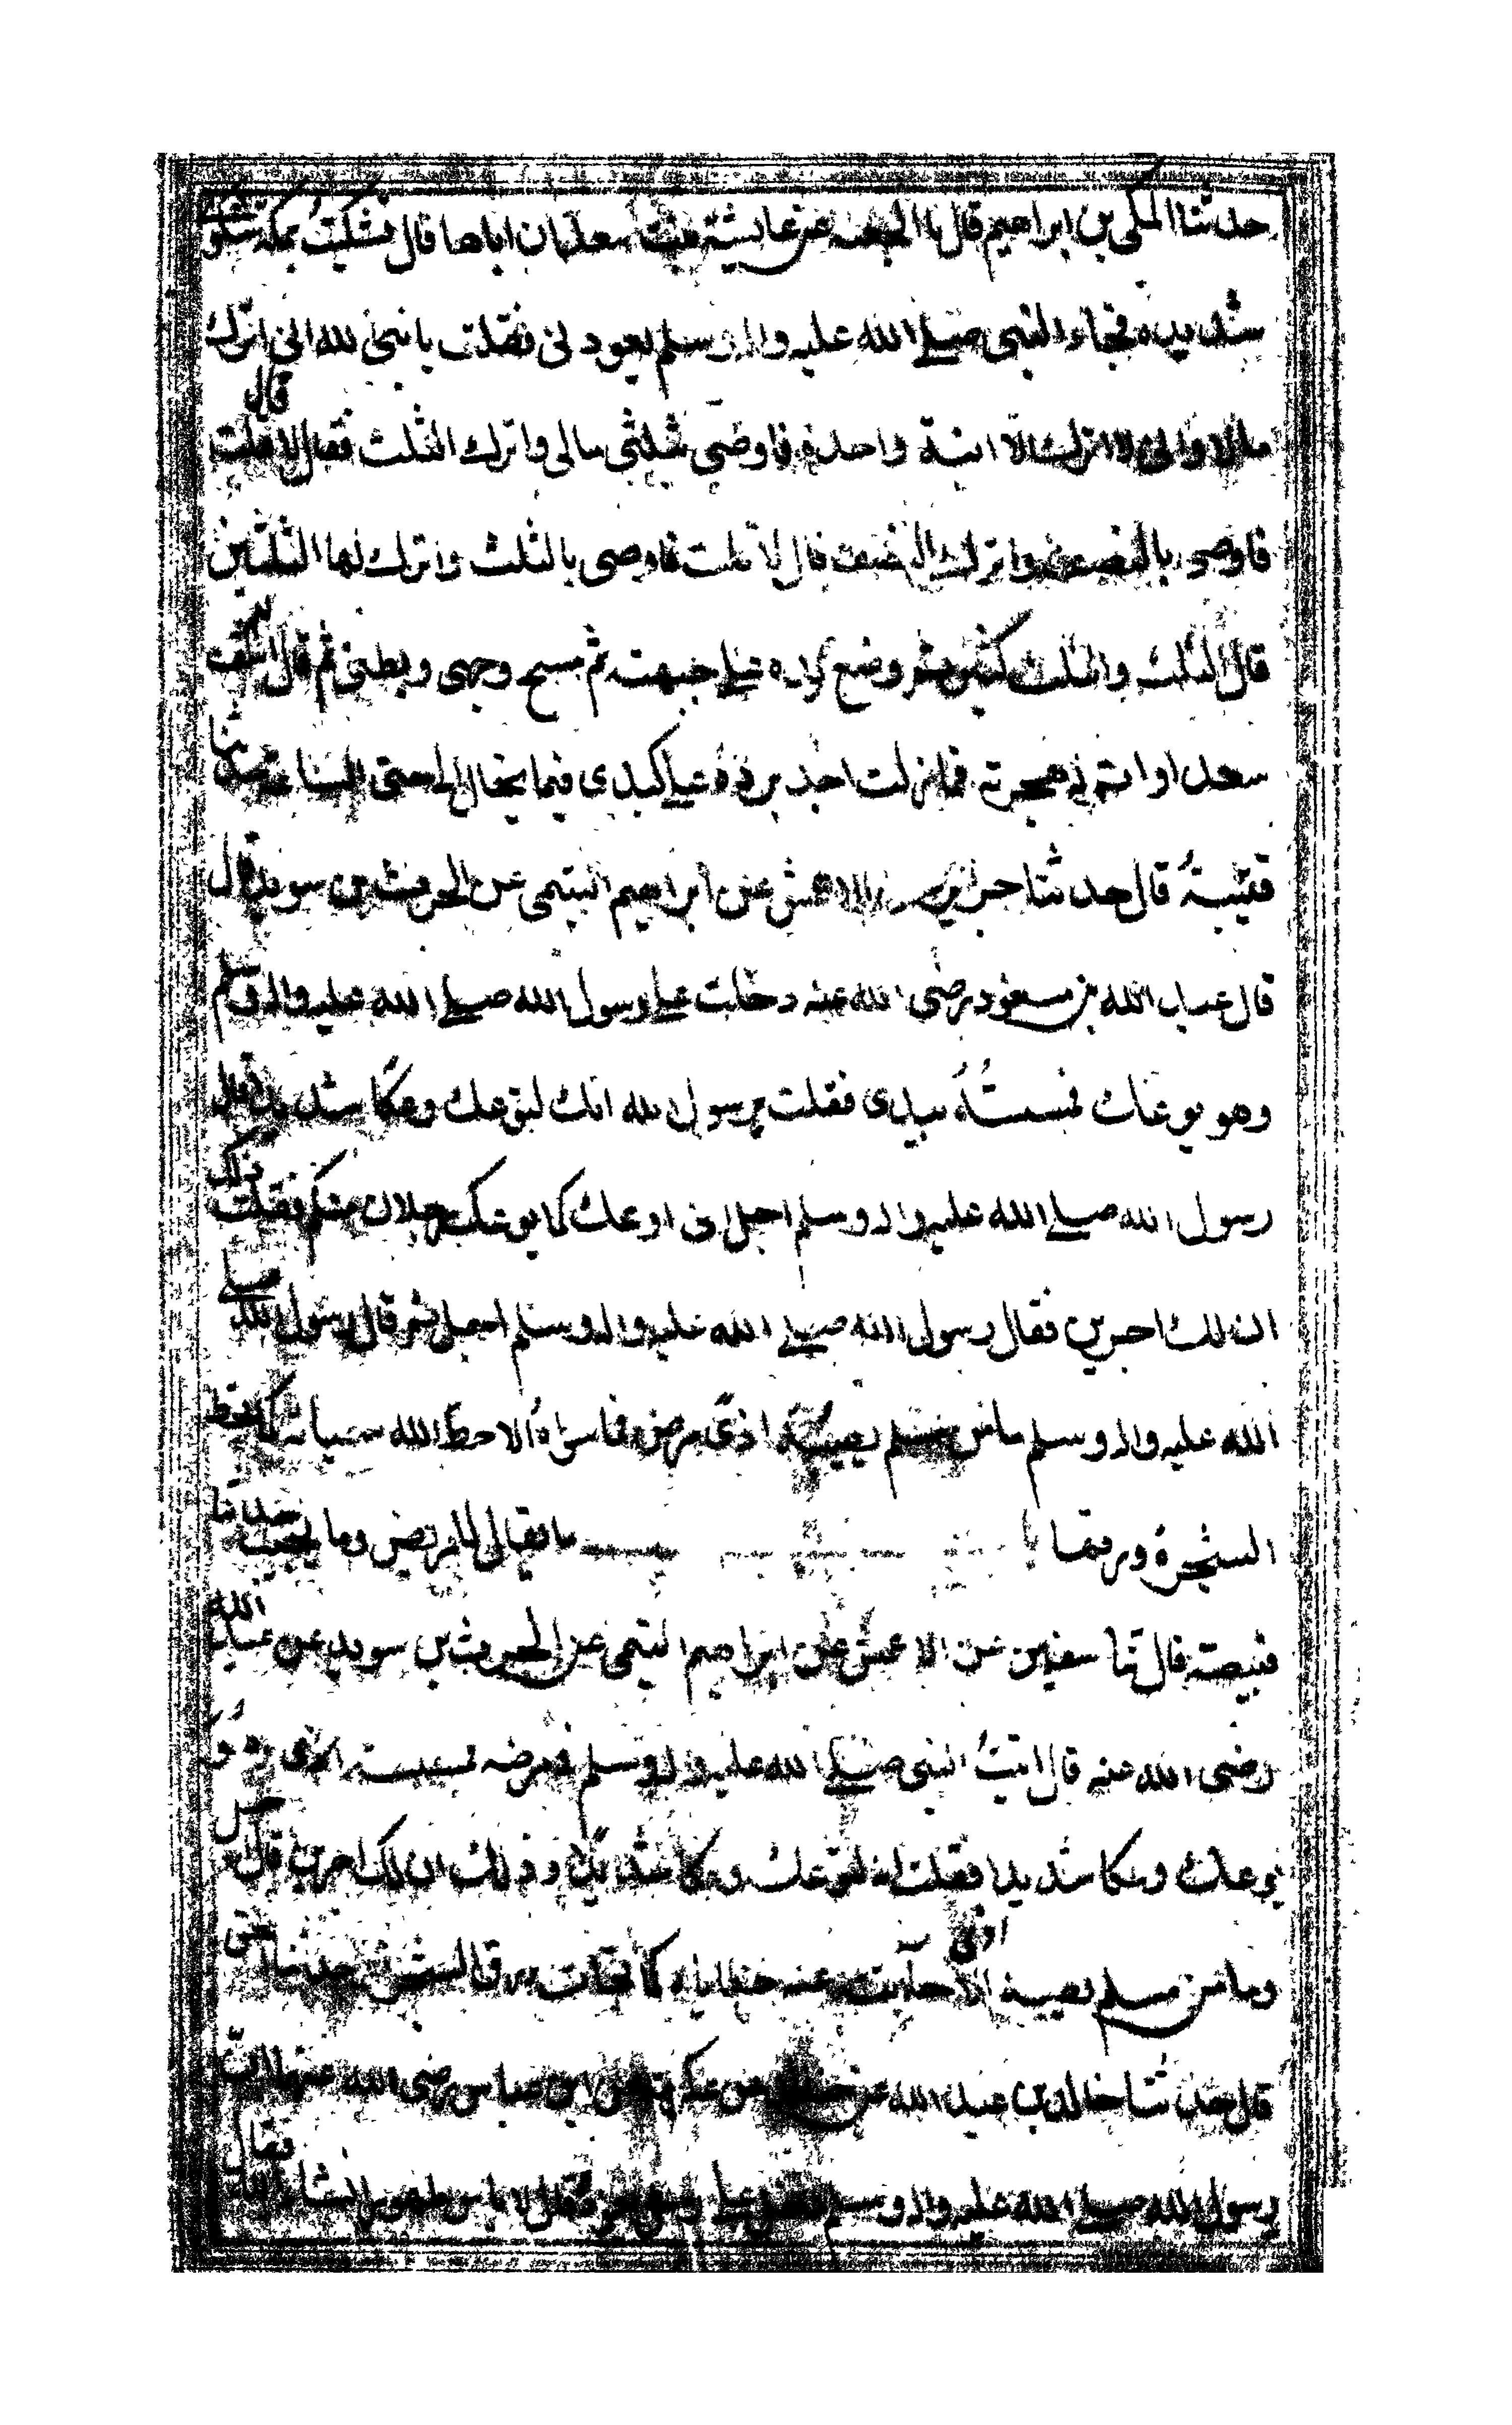 حدثنا المكي بن ابراهيم قال نا الجعيد عن عايشة بنت سعد ان اباها قال تشكيت بمكة شكو
شديده فجاء النبى صلى الله عليه واله وسلم يعودنى فقلت يا نبى الله انى اترك
مالا وانى لا اترك الا ابنة واحدة فاوصى بثلثى مالى واترك الثلث فقال لا قلت قال
فاوصى بالنصف واترك النصف قال لا قلت فاوصى بالثلث واترك لها الثلثين
قال الثلث والثلث كثير ثم وضع يده على جبهته ثم مسح وجهى وبطنى ثم قال اللهم اشف
سعدا واتم له هجرته فما زلت اجد برده على كبدى فيما يخال الى حتى الساعة حدثنا
قتيبة قال حدثنا جرير عن الاعمش عن ابراهيم التيمى عن الحرث بن سويد قال
قال عبد الله بن مسعود رضى الله عنه دخلت على رسول الله صلى الله عليه واله وسلم
وهو يوعك فمسسته بيدى فقلت يرسول الله انك لتوعك وعكا شديدا قال
رسول الله صلى الله عليه واله وسلم اجل انى اوعك كما يوعك رجلان منكم فقلت ذلك
ان لك اجرين فقال رسول الله صلى الله عليه واله وسلم اجل ثم قال رسول الله صلى
الله عليه واله وسلم ما من مسلم يصيبه اذى مرض فما سواه الا حط الله سيئاته كما تحط
الشجرة ورقها با ما يقال للمريض وما يجيب حدثنا
قبيصة قال ثنا سفين عن الاعمش عن ابراهيم التيمى عن الحرث بن سويد عن عبد الله
رضى الله عنه قال اتيت النبى صلى الله عليه واله وسلم فى مرضه فمسسته وهو
يوعك وعكا شديدا فقلت انك لتوعك وعكا شديدا وذلك ان لك اجرين قال اجل
وما من مسلم يصيبه اذى الا حاتت عنه خطاياه كما تحات ورق الشجر حدثنا اسحق
قال حدثنا خالد بن عبد الله عن خالد عن عكرمة عن ابن عباس رضى الله عنهما ان
رسول الله صلى الله عليه واله وسلم دخل على رجل يعوده فقال لا باس طهور ان شاء الله فقال